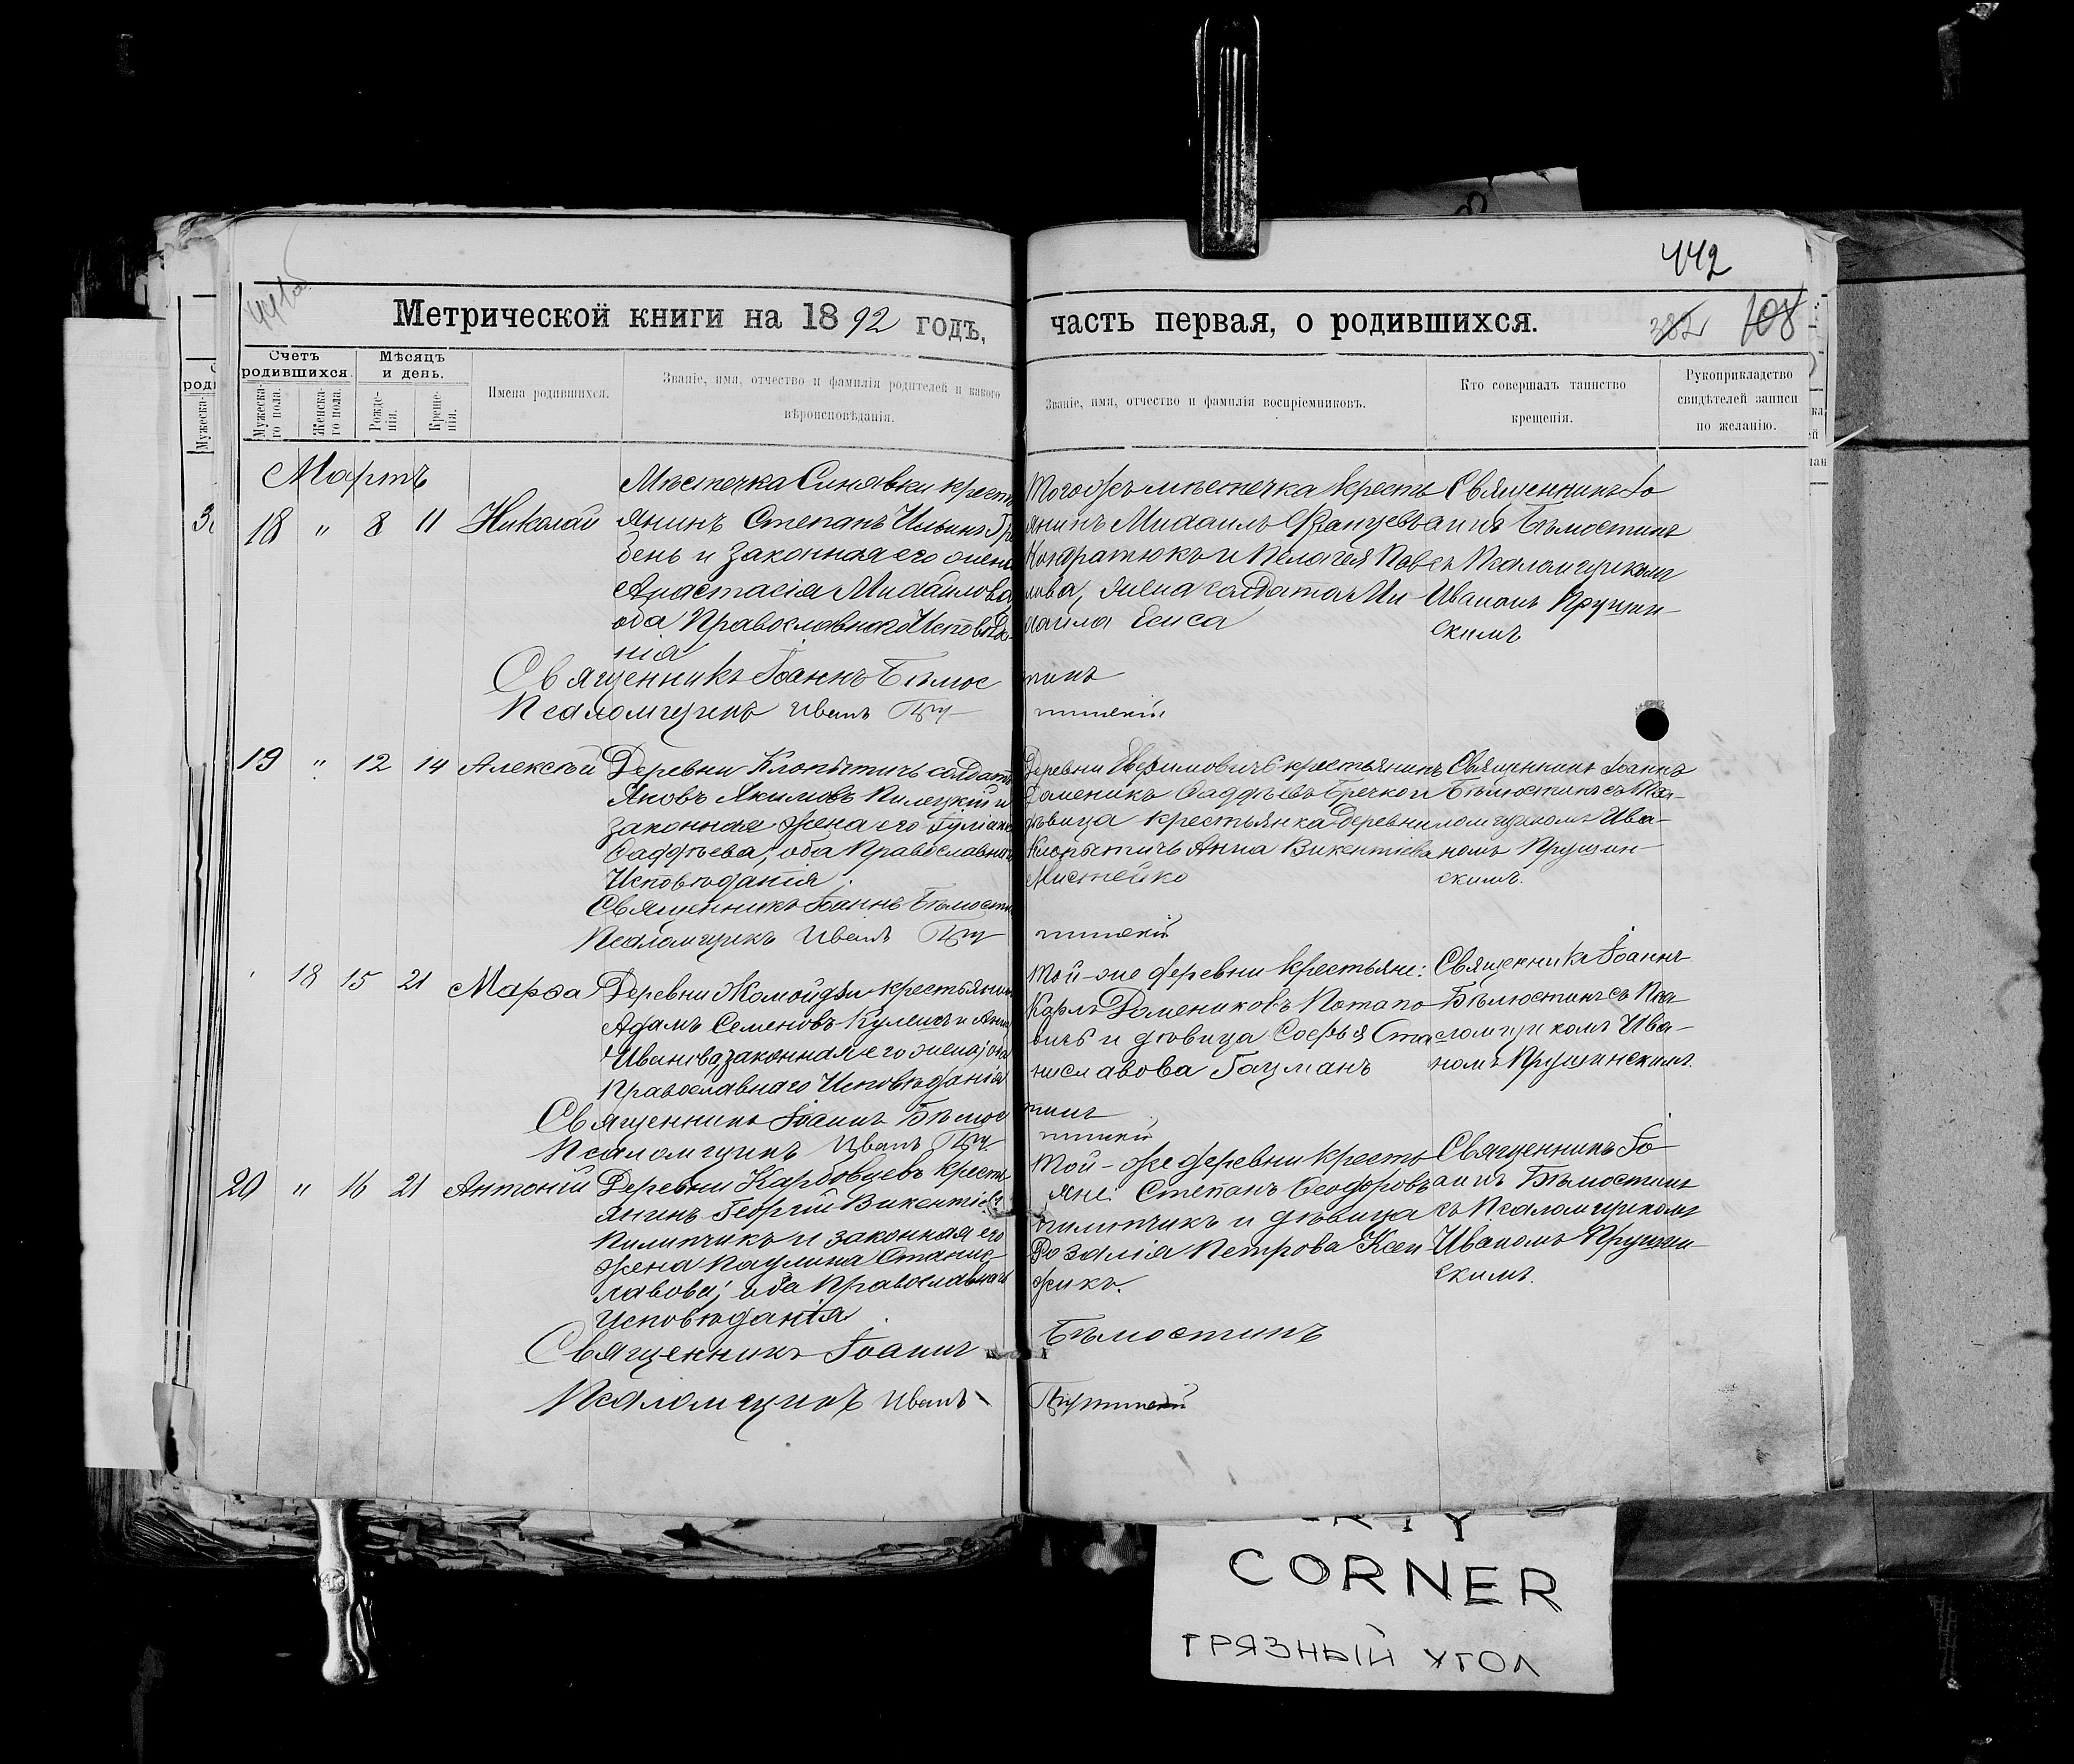 442
Метрической книги на 1892 годъ,
часть первая, о родившихся.
108
Счетъ родившихся.
Мѣсяцъ и день.
Мужеска-го пола.
Женска-го пола.
Рожде-нія.
Креще-нія.
Имена родившихся.
Званіе, имя, отчество и фамилія родителей и какого
вѣроисповѣданія.
Званіе, имя, отчество и фамилія воспріемниковъ.
Кто совершалъ таинство
крещенія.
Рукоприкладство
свидѣтелей записи
по желанію.
Мартъ
18 " 8 11 Николай
Мѣстечка Синявки кресть
янинъ Степанъ Ильинъ Гре
бень и законная его жена
Анастасія Михайлова
оба Православнаго Исповѣда-
нія
Того жъ мѣстечка кресть
янинъ Михаилъ Францевъ
Кондратюкъ и Пелагея Пав
лова, жена солдата Ми
хаила Есиса
Священникъ Іо
аннъ Бѣлюстинъ
съ Псаломщикомъ
Иваномъ Прушин-
скимъ
Священникъ Іоаннъ Бѣлюс тинъ
Псаломщикъ Иванъ Пру шинскій
19 " 12 14 Алексѣй
Деревни Клопытичь солдатъ
Яковъ Якимовъ Пилецкій и
законная жена его Іуліанія
Фаддѣева, оба Православнаго
Исповѣданія.
Деревни Ефимовичь крестьянинъ
Доменикъ Фаддѣевъ Гречко и
дѣвица крестьянка деревни
Клопытичь Анна Викентіева
Мистейко
Священникъ Іоаннъ
Бѣлюстинъ съ Пса-
ломщикомъ Ива-
номъ Прушин-
скимъ.
Священникъ Іоаннъ Бѣлюстин
Псаломщикъ Иванъ Пру шинскій
18 15 21 Марѳа
Деревни Жомойдзи крестьянинъ
Адамъ Семеновъ Кулешъ и Анна
Иванова, законная его жена, оба
Православнаго Исповѣданія
Той-же деревни крестьяне:
Карлъ Домениковъ Потапо
вичъ и дѣвица Софья Ста
ниславова Гацманъ
Священникъ Іоаннъ
Бѣлюстинъ съ Пса
ломщикомъ Ива-
номъ Прушинскимъ.
Священникъ Іоаннъ Бѣлюс тинъ
Псаломщикъ Иванъ Пру шинскій
20 " 16 21 Антоній
Деревни Карбовцевъ кресть
янинъ Георгій Викентіевъ
Пилипчикъ и законная его
жена Паулина Станис
лавова; оба Православнаго
Исповѣданія.
Той-же деревни кресть
яне: Степанъ Ѳеодоровъ
Пилипчикъ и дѣвица
Розалія Петрова Ксен
жикъ.
Священникъ Іо-
аннъ Бѣлюстинъ
съ Псаломщикомъ
Иваномъ Прушин-
скимъ.
Священникъ Іоаннъ Бѣлюстинъ
Псаломщикъ Иванъ Прушинскій
CORNER
ГРЯЗНЫЙ УГОЛ